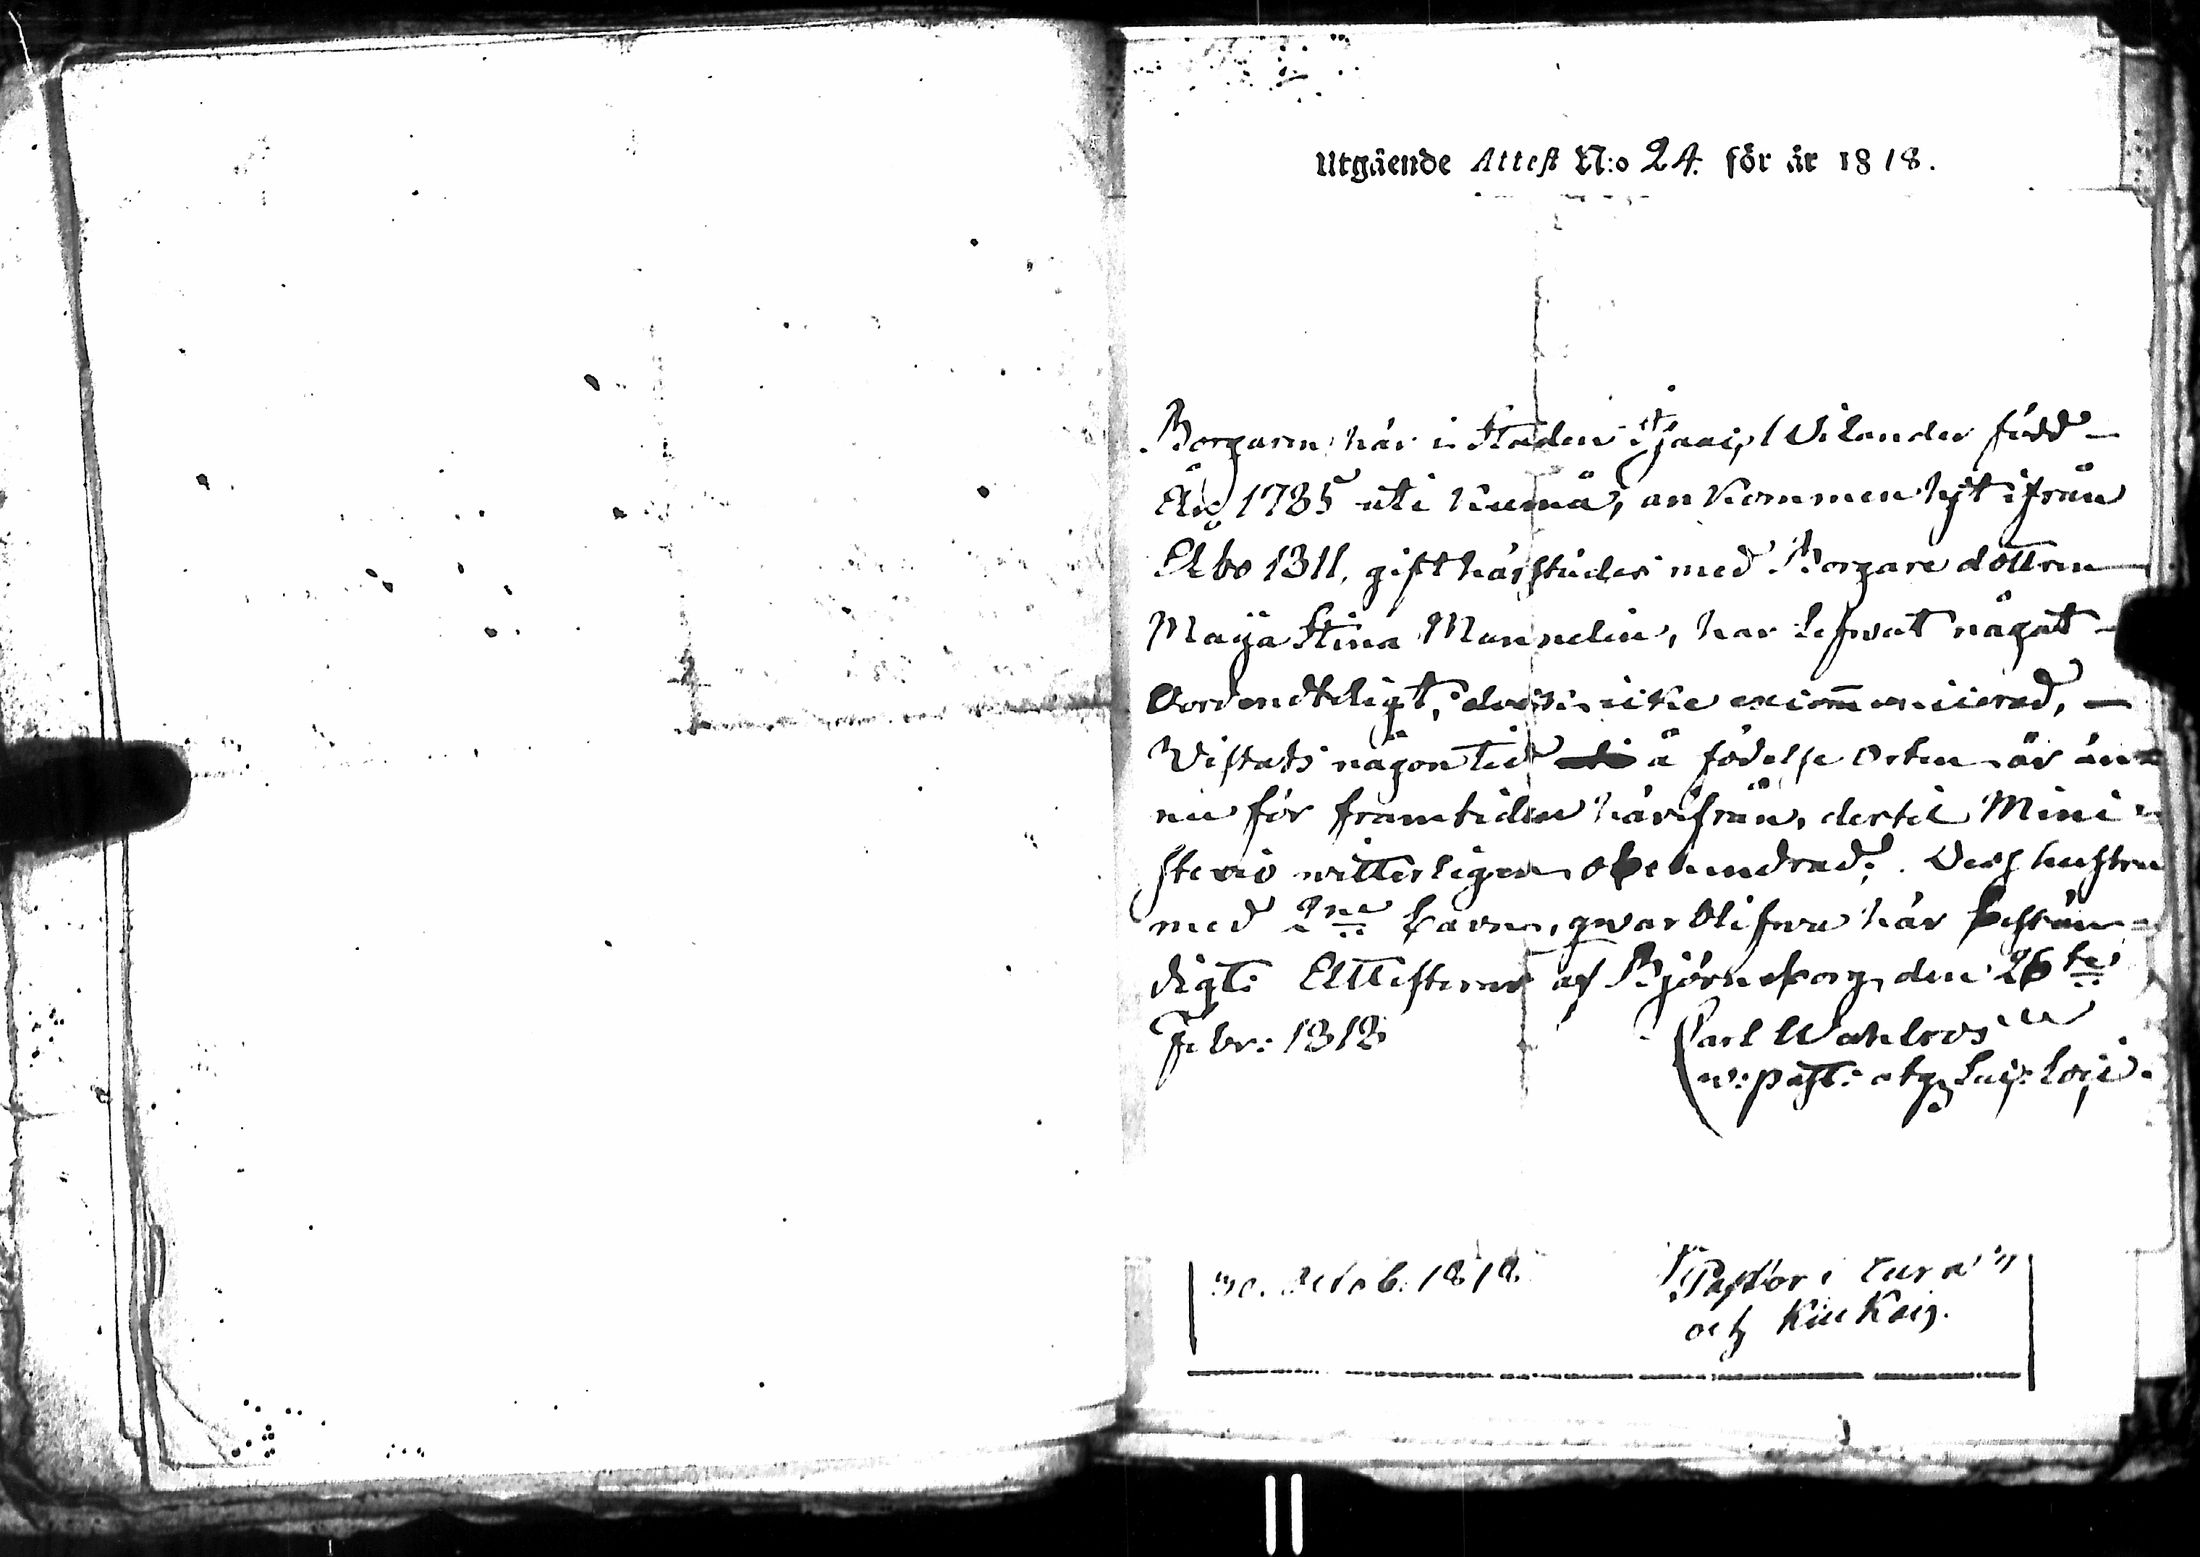 Utgående Attest N:o 24. för år 1818.
Borgaren här i Staden Isaac Wilander född
År 1785 uti Kumå, ankommen hjt ifrån
Åbo 1811, gift härstädes med Borgare dottren
Maija Stina Mannelin, har lefwat något
Oordendteligt, dock icke excom̄unicerad,
Wistats någon tid å födelse Orten är än-
nu för framtiden härifrån, dertil Mini-
sterio witterligen obehindrad. Dess hustru
med 2ne barn, qwarblifwa här bestän-
digt: Attesteras af Björneborg den 26te
Febr: 1818 Carl Wahlroos
w: past:
30. Octob. 1818. Pastor i
och